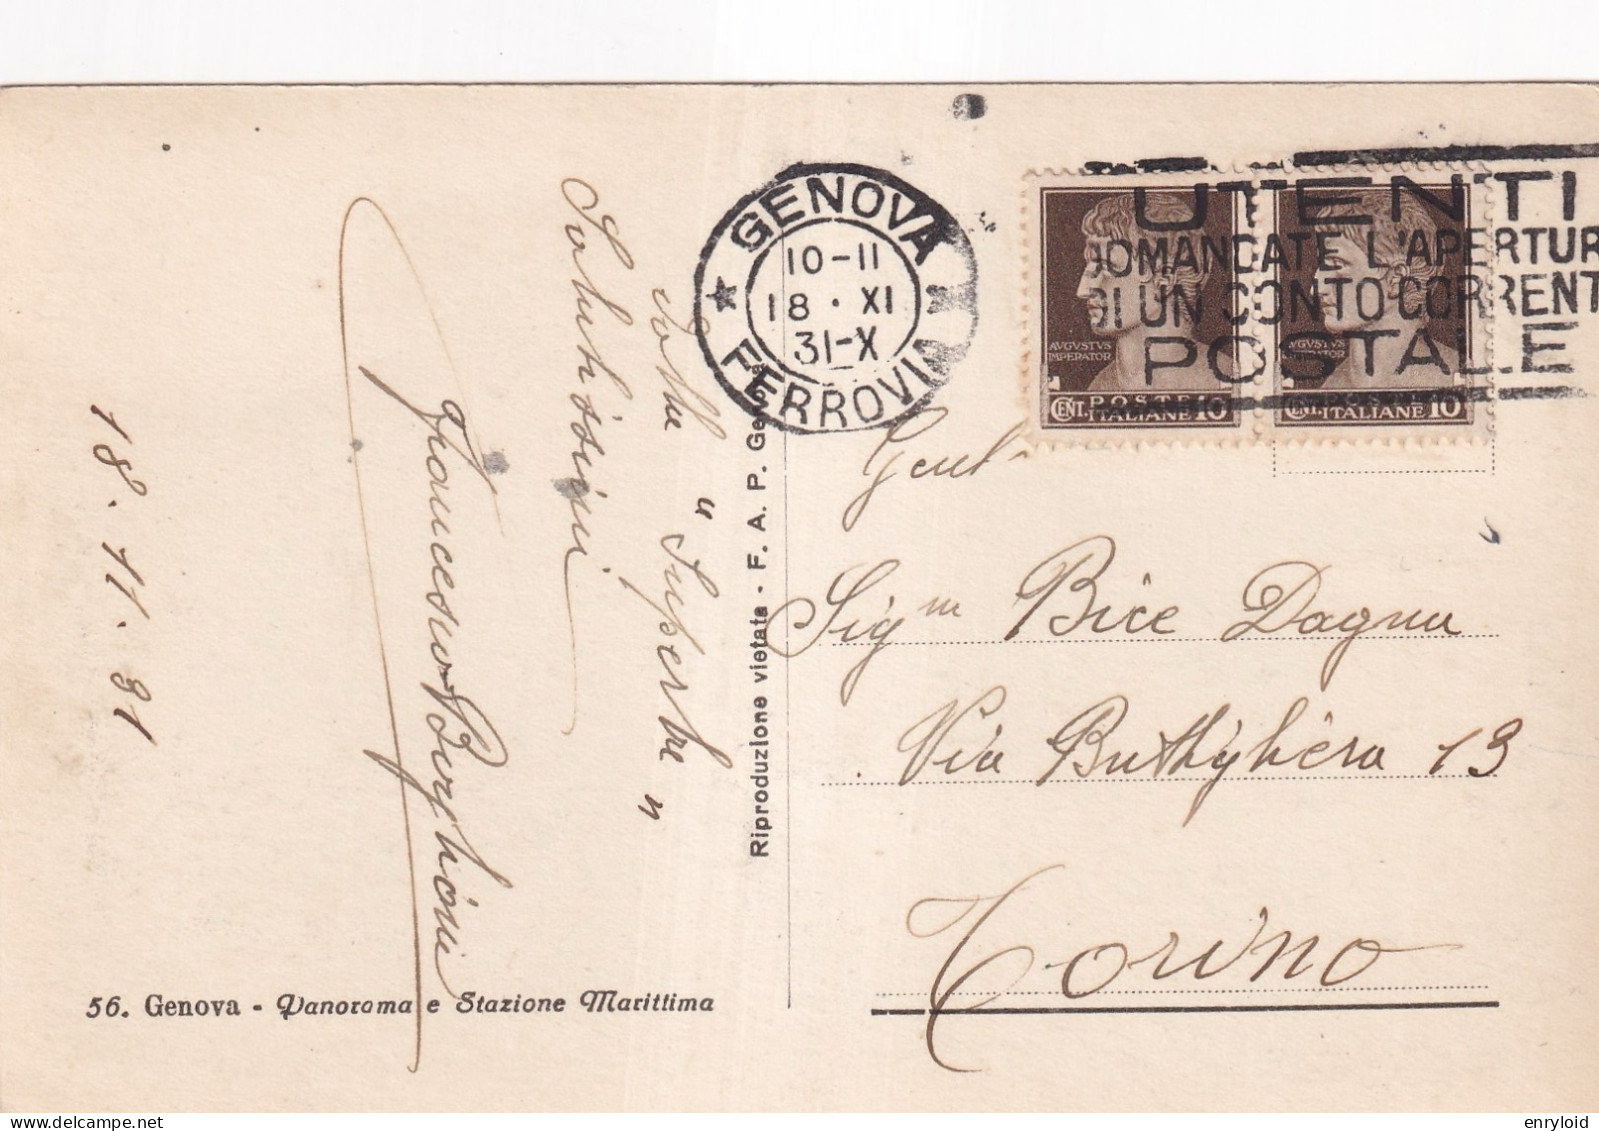 18. 11. 31
Francesco Borghini
Salutissimi
dalla
" Superba "
56. Genova - Panorama e Stazione Marittima
Riproduzione vietata - F. A. P. Genova
GENOVA
10-11
18 · XI
31-X
FERROVIA
UTENTI
DOMANDATE L'APERTUR
DI UN CONTO CORRENT
POSTALE
AVGVSTVS
IMPERATOR
POSTE
CENT. ITALIANE 10
AVGVSTVS
IMPERATOR
POSTE
CENT. ITALIANE 10
Gent.
Sig.na Bice Dagna
Via Buttigliera 13
Torino
enryloid
delcampe.net